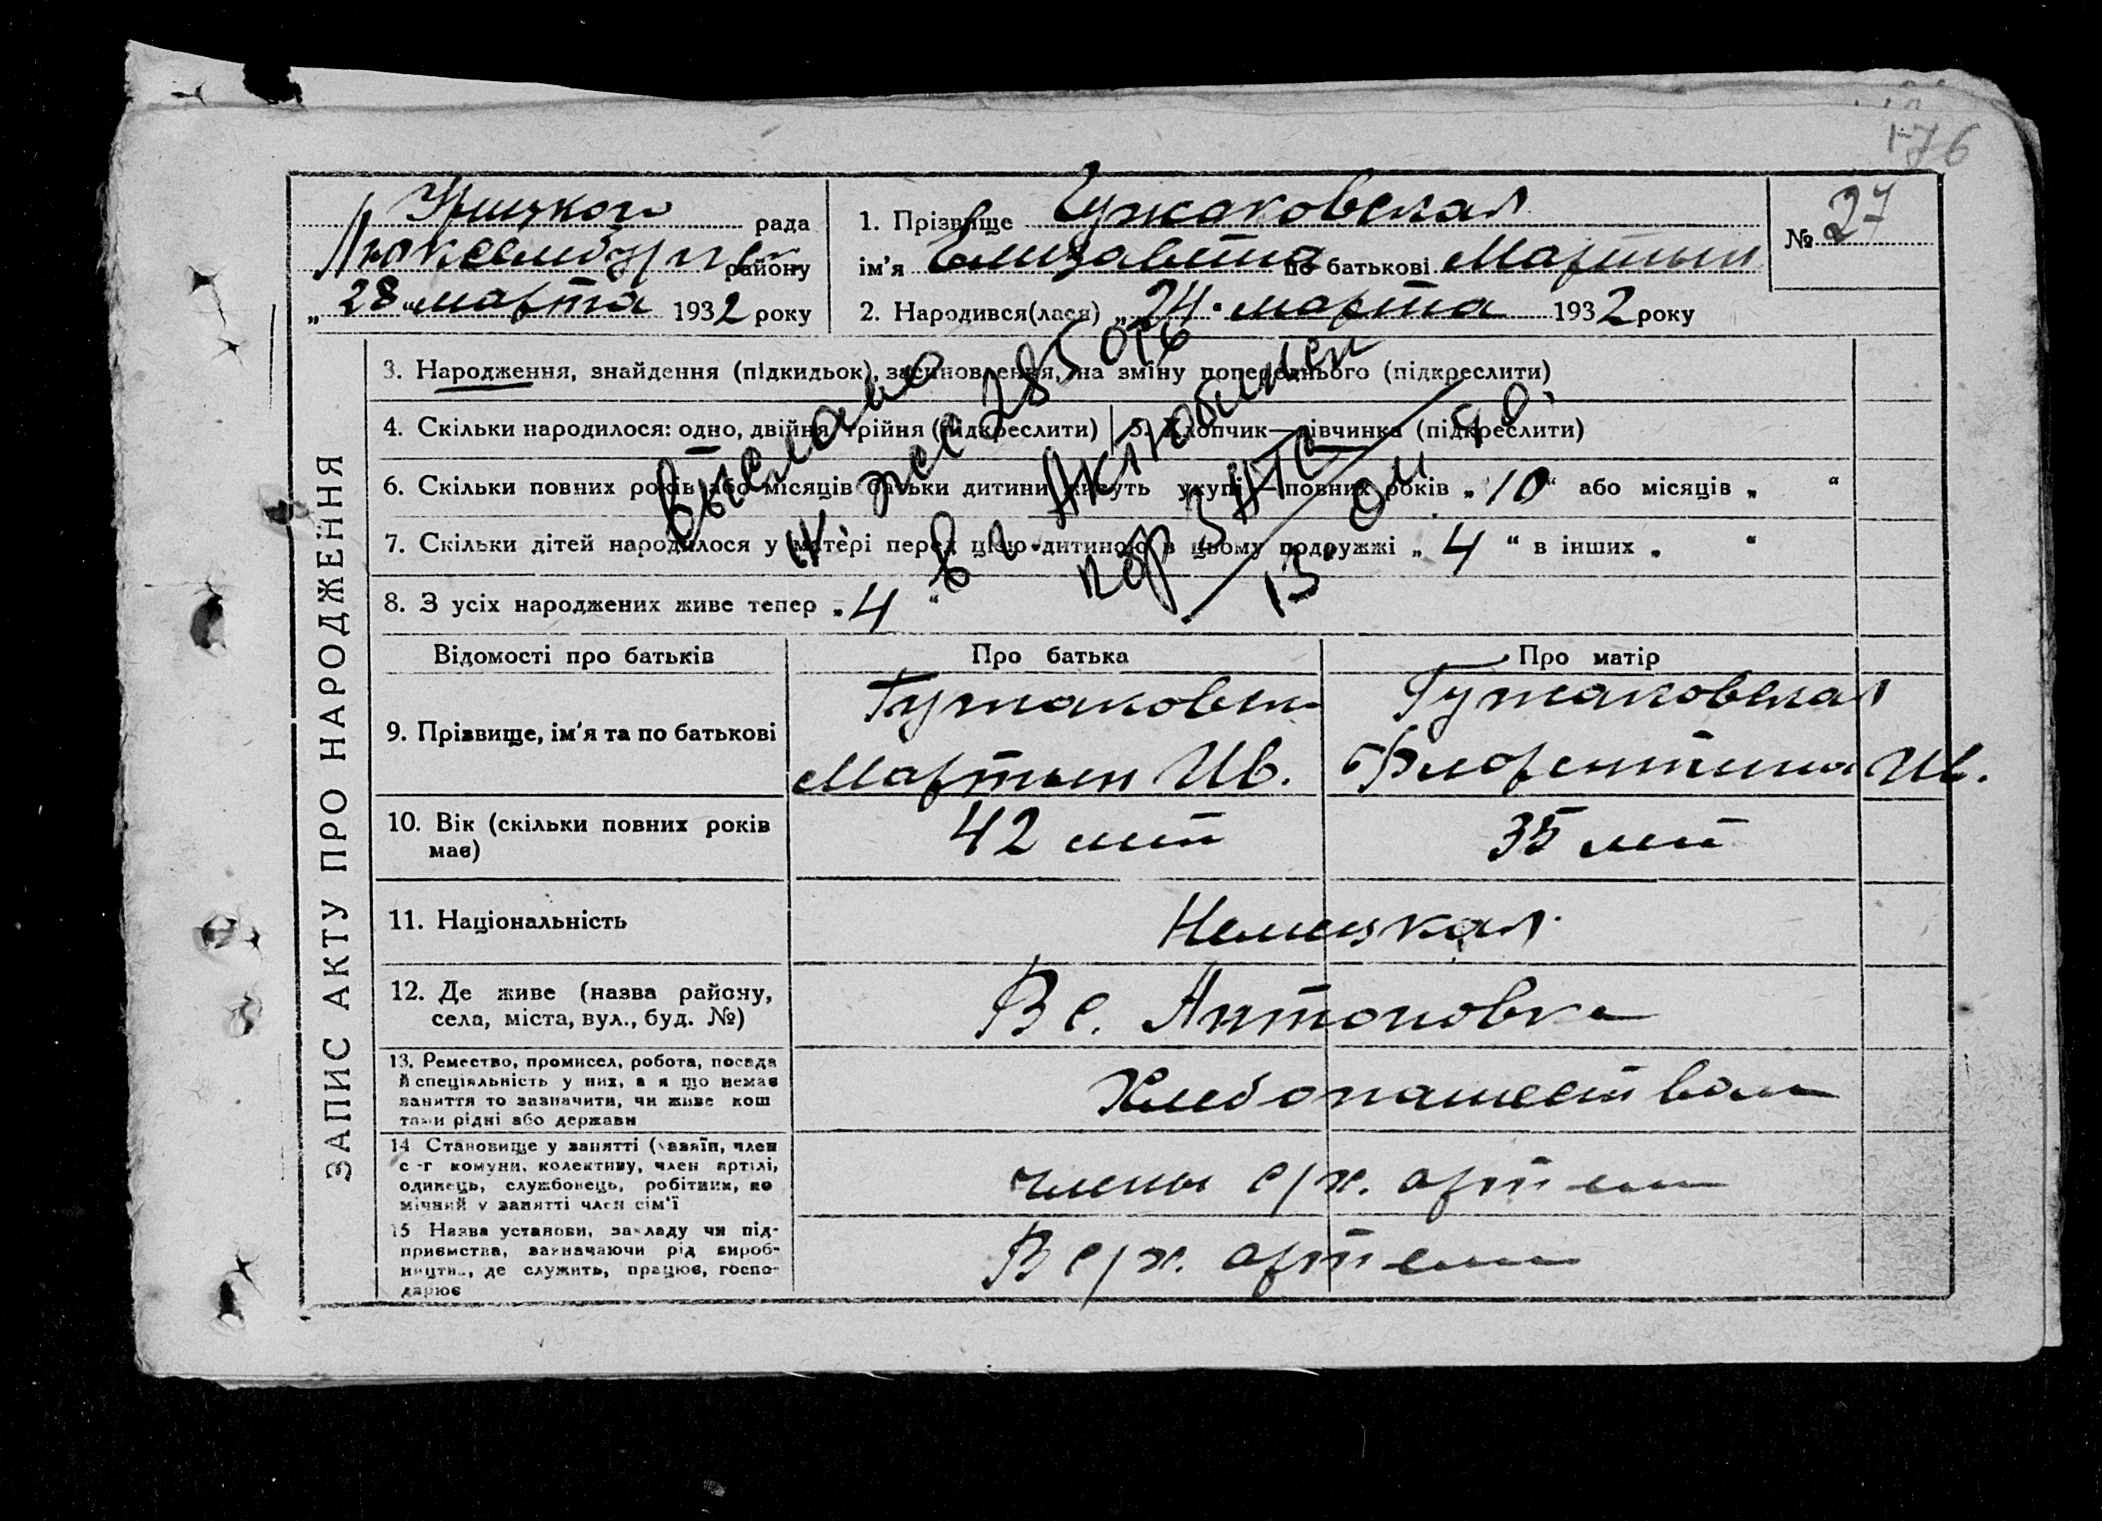 176
Урицкого рада
Люксембургск району
„ 28 " марта 1932 року
1. Прізвище Гужаковская
ім'я Елизавета по батькові Мартын
2. Народився(лася) „ 24 " марта 1932 року
№ 27
ЗАПИС АКТУ ПРО НАРОДЖЕННЯ
3. Народження, знайдення (підкидьок), засиновлення, на зміну попереднього (підкреслити)
4. Скільки народилося: одно, двійня, трійня (підкреслити) 5. Хлопчик—дівчинка (підкреслити)
6. Скільки повних років або місяців батьки дитини живуть укупі—повних років „ 10 " або місяців „ "
7. Скільки дітей народилося у матері перед цією дитиною в цьому подружжі „ 4 " в інших „ "
8. З усіх народжених живе тепер „ 4 "
Выслано
285076
в г. Актюбинск
13
Відомості про батьків Про батька Про матір
9. Прізвище, ім'я та по батькові
Гужаковск Гужаковская
Мартын Ив. Флорентина Ив.
10. Вік (скільки повних років
має)
42 лет 35 лет
11. Національність Немецкая
12. Де живе (назва району,
села, міста, вул., буд. №)
В с. Антоновке
13. Ремество, промисел, робота, посада
й спеціяльність у них, а я що немає
заняття то зазначити, чи живе кош
тами рідні або держави
Хлебопашеством
14 Становище у занятті (хазяїн, член
с-г комуни, колективу, член артілі,
одинець, службовець, робітник, по
мічний у занятті член сім'ї
члены с/х. артели
15 Назва установи, закладу чи під-
приємства, зазначаючи рід вироб-
ництва, де служить, працює, госпо-
дарює
В с/х. артели